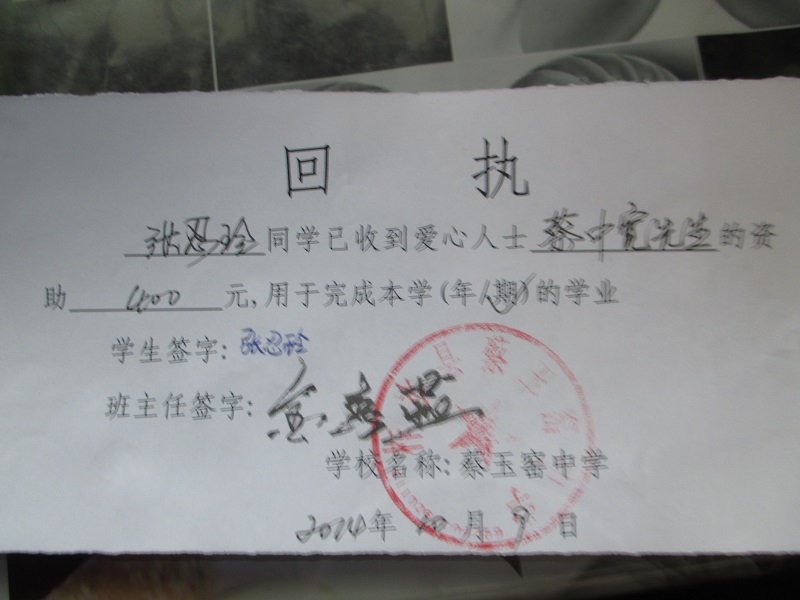 回 执
张忍玲同学已收到爱心人士蔡中宽先生的资
助 400 元,用于完成本学(年/期)的学业
学生签字:张忍玲
班主任签字:
学校名称:蔡玉窑中学
2014年 10 月 9 日